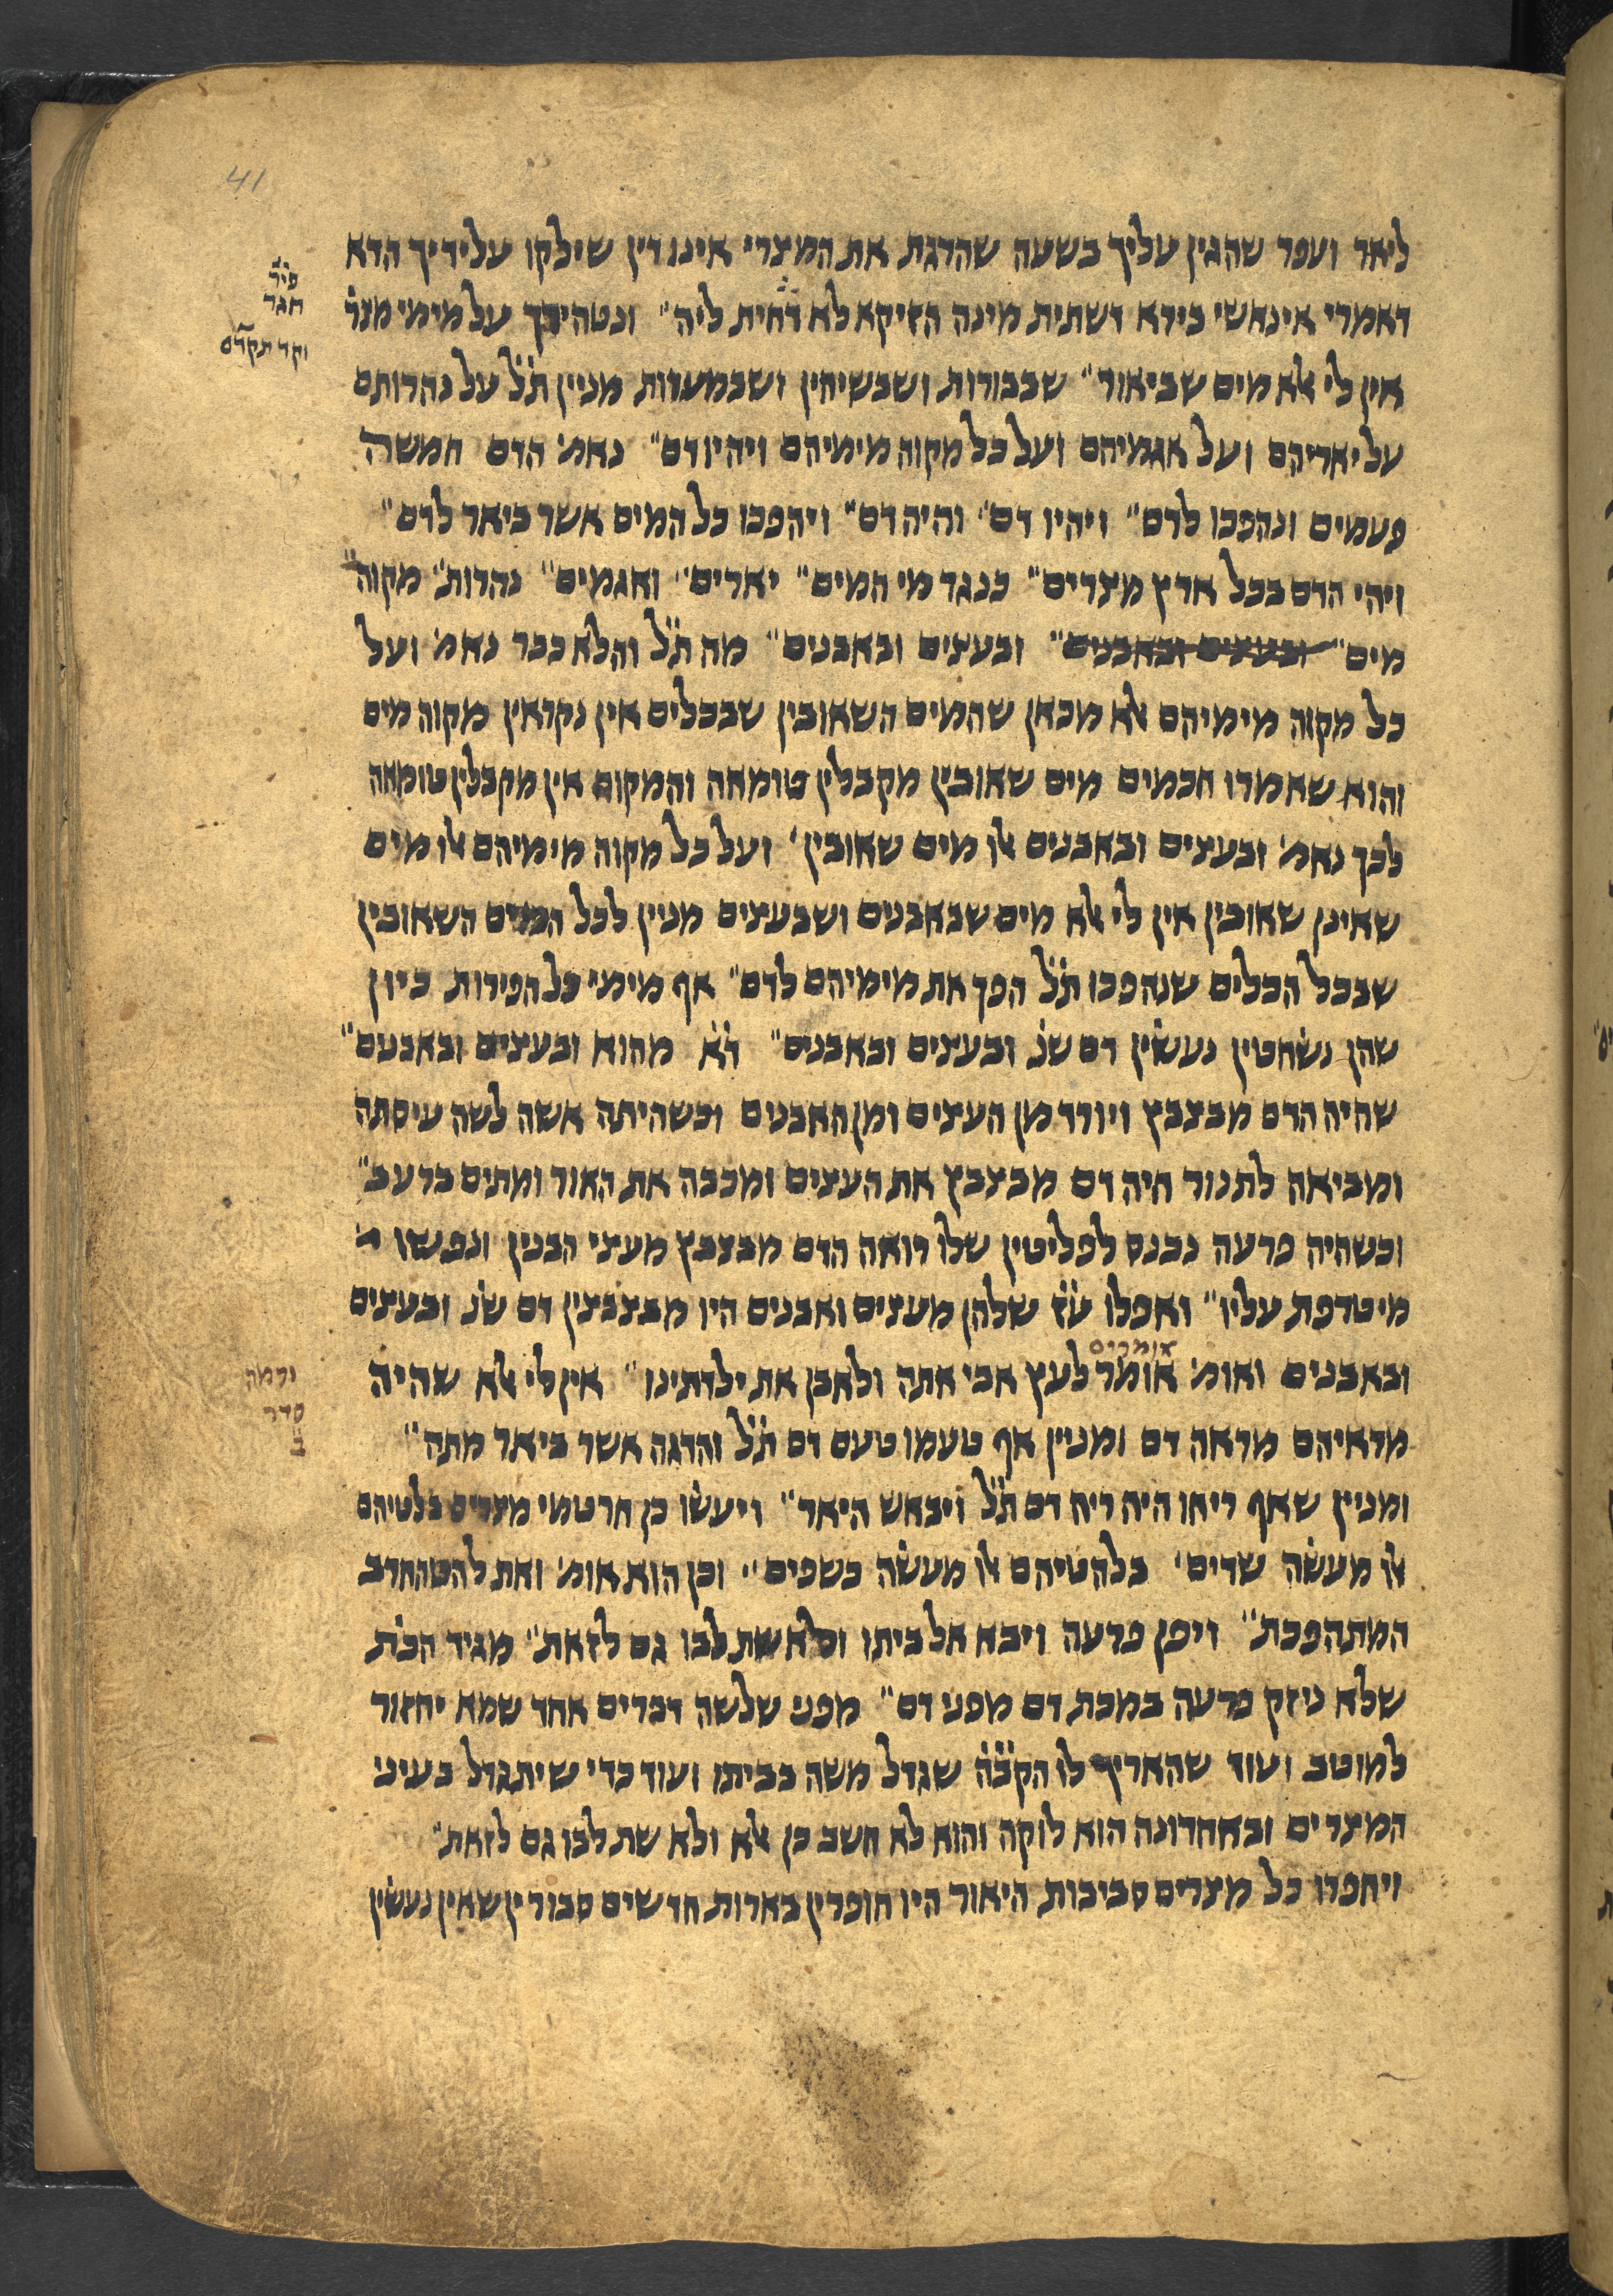 41
ליאר ועפר שהגין עליך בשעה שהרגת את המצרי אינו דין שילקו על ידיך הדא
דאמרי אינאשי בירא דשתית מינה הזיקא לא דחית ליה״ ונטה ידך על מימי מצר׳
פיר
חגר
וקד תקדם
אין לי אלא מים שביאור״ שבבורות ושבשיחין ושבמערות מניין ת״ל על נהרותם
על יאריהם ועל אגמיהם ועל כל מקוה מימיהם ויהיו דם״ נאמ׳ הדם חמשה
פעמים ונהפכו לדם״ ויהיו דם״ והיה דם״ ויהפכו כל המים אשר ביאר לדם״
ויהי הדם בכל ארץ מצרים״ כנגד מי המים״ יארים״ ואגמים״ נהרות״ מקוה״
מים״ ובעצים ובאבנים״ ובעצים ובאבנים״ מה ת״ל והלא כבר נאמ׳ ועל
כל מקוה מימיהם אלא מכאן שהמים השאובין שבכלים אין נקראין מקוה מים
והוא שאמרו חכמים מים שאובין מקבלין טומאה והמקוה אין מקבלין טומאה
לכך נאמ׳ ובעצים ובאבנים אלו מים שאובין׳ ועל כל מקוה מימיהם אלו מים
שאינן שאובין אין לי אלא מים שבאבנים ושבעצים מניין לכל המים השאובין
שבכל הכלים שנהפכו ת״ל הפך את מימיהם לדם״ אף מימי כל הפירות כיון
שהן נשחטין נעשין דם שנ׳ ובעצים ובאבנים״ ד״א מהוא ובעצים ובאבנים״
שהיה הדם מבצבץ ויורד מן העצים ומן האבנים וכשהיתה אשה לשה עיסתה
ומביאה לתנור היה דם מבצבץ את העצים ומכבה את האור ומתים ברעב״
וכשהיה פרעה נכנס לפליטין שלו רואה הדם מבצבץ מעצי הבנין ונפשו
מיטרפת עליו״ ואפלו ע״ז שלהן מעצים ואבנים היו מבצבצין דם שנ׳ ובעצים
אומרים
ובאבנים ואומ׳ אומר לעץ אבי אתה ולאבן את ילדתינו״ אין לי אלא שהיה
ורמה
סדר
ב
מראיהם מראה דם ומניין אף טעמו טעם דם ת״ל והדגה אשר ביאר מתה״
ומניין שאף ריחו היה ריח דם ת״ל ויבאש היאר״ ויעשו כן חרטמי מצרים בלטיהם
אלו מעשה שדים׳ בלהטיהם אלו מעשה כשפים״ וכן הוא אומ׳ ואת להט החרב
המתהפכת״ ויפן פרעה ויבא אל ביתו ולא שת לבו גם לזאת״ מגיד הכת׳
שלא ניזק פרעה במכת דם מפני דם״ מפני שלשה דברים אחד שמא יחזור
למוטב ועוד שהאריך לו הקב״ה שגדל משה בביתו ועוד כדי שיתגדל בעיני
המצרים ובאחרונה הוא לוקה והוא לא חשב כן אלא ולא שת לבו גם לזאת״
ויחפרו כל מצרים סביבות היאור היו חופרין בארות חדשים סבורין שאין נעשין